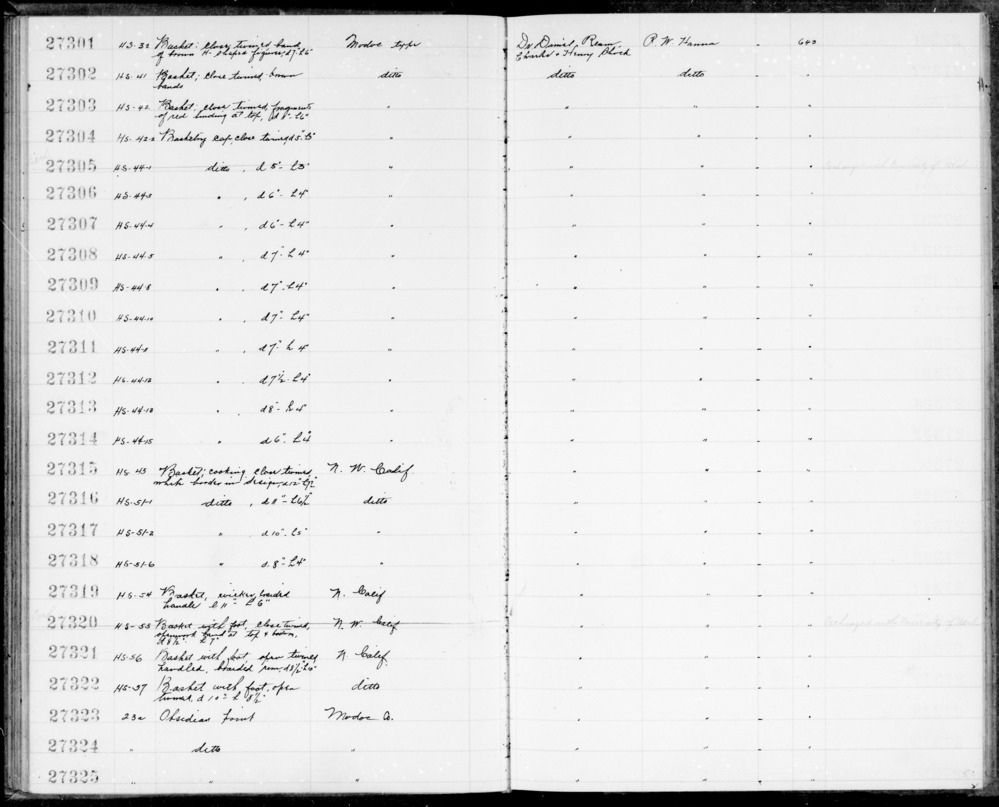 27301 HS-32 Basket; close twined, band Modoc type Dr. Daniel Ream P. W. Hanna - 643
of brown H- shaped figures, d7" L6" Charles & Henry Block
27302 HS-41 Basket; close twined, brown ditto ditto ditto - "
bands
27303 HS-42 Basket; close twined, fragments " " " - "
of red binding at top, d8" L6"
27304 HS-42-2 Basketry cap, close twined, d5" L3" " " " - "
27305 HS-44-1 ditto, d 5" - L3" " " " - " Exchanged with University of Utah
27306 HS-44-3 " , d 6" - L4" " " " - "
27307 HS-44-4 " , d 6" - L4" " " " - "
27308 HS-44-5 " , d 7" L 4" " " " - "
27309 HS-44-8 " , d 7" L4" " " " - "
27310 HS-44-10 " , d 7" L4" " " " - "
27311 " , d 7" L 4" " " " - "
27312 HS-44-12 " , d 7½ - L4" " " " - "
27313 " , d 8" - L4" " " " - "
27314 HS-44-15 " d 6" - L4" " " " - "
27315 HS-45 Basket; cooking, close twined, N. W. Calif " " - "
border in design, d12"
27316 HS-51-1 ditto, d 8" - L6½" ditto " " - "
27317 HS-51-2 " d 10" L5" " " " - "
27318 HS-51-6 " d. 8" L4" " " " - "
27319 HS-54 Basket, wicker, braided N. Calif " " - "
handle l 11" L 6"
27320 HS-55 Basket with foot, close twined, N. W. Calif " " - " Exchanged with University of Utah
openwork band at top & bottom,
d 8½" L 7"
27321 HS-56 Basket with foot open twined N. Calif " " - "
handled, braided rim,
27322 HS-57 Basket with foot, open ditto " " - "
twined, d 10" L 8½"
27323 23a Obsidian Point Modoc Co. " " - "
27324 " ditto " " " - "
27325 " " " " " - "